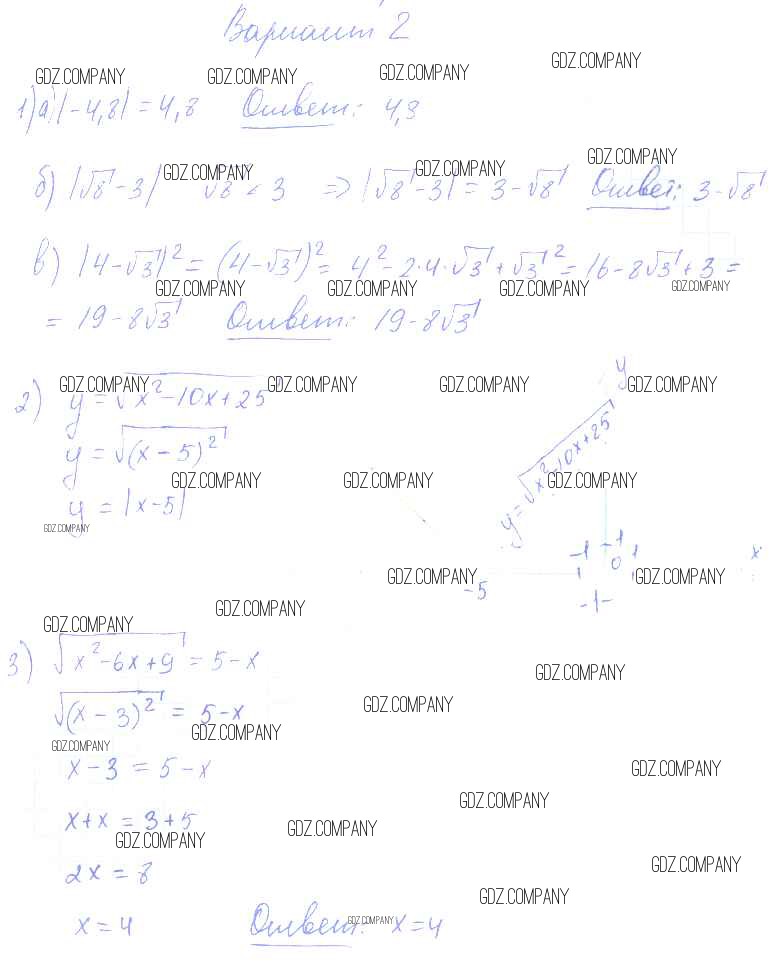 Вариант 2
GDZ.COMPANY GDZ.COMPANY GDZ.COMPANY GDZ.COMPANY
1) а) |-4,8| = 4,8 Ответ: 4,8
GDZ.COMPANY GDZ.COMPANY GDZ.COMPANY
б) |√8 - 3| √8 < 3 ⇒ |√8 - 3| = 3 - √8 Ответ: 3 - √8
в) |4 - √3|² = (4 - √3)² = 4² - 2·4·√3 + √3² = 16 - 8√3 + 3 =
GDZ.COMPANY GDZ.COMPANY GDZ.COMPANY GDZ.COMPANY
= 19 - 8√3 Ответ: 19 - 8√3
GDZ.COMPANY GDZ.COMPANY GDZ.COMPANY GDZ.COMPANY
2) y = √x² - 10x + 25
y = √(x - 5)²
GDZ.COMPANY GDZ.COMPANY GDZ.COMPANY
y = |x - 5|
GDZ.COMPANY
y
y = √x² - 10x + 25
-1 -1 1 x
0
GDZ.COMPANY GDZ.COMPANY
-5 -1-
GDZ.COMPANY GDZ.COMPANY
3) √x² - 6x + 9 = 5 - x
GDZ.COMPANY
√(x - 3)² = 5 - x
GDZ.COMPANY GDZ.COMPANY GDZ.COMPANY
x - 3 = 5 - x
GDZ.COMPANY GDZ.COMPANY
x + x = 3 + 5
GDZ.COMPANY GDZ.COMPANY
2x = 8
GDZ.COMPANY GDZ.COMPANY
x = 4 Ответ: x = 4
GDZ.COMPANY